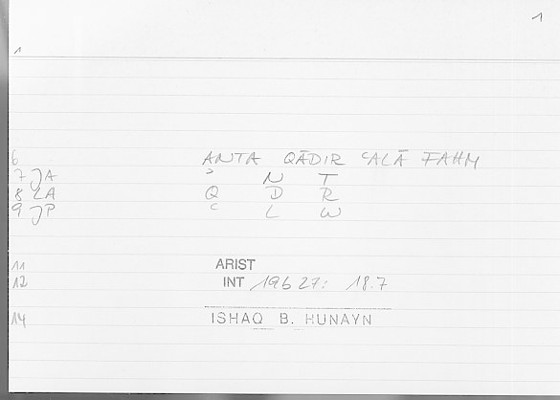 1
1
6 ANTA QĀDIR ʿALĀ FAHM
7 JA ʾ N T
8 LA Q D R
9 JP ʿ L W
11 ARIST
12 INT 19b 27: 18.7
14 ISHAQ B. HUNAYN